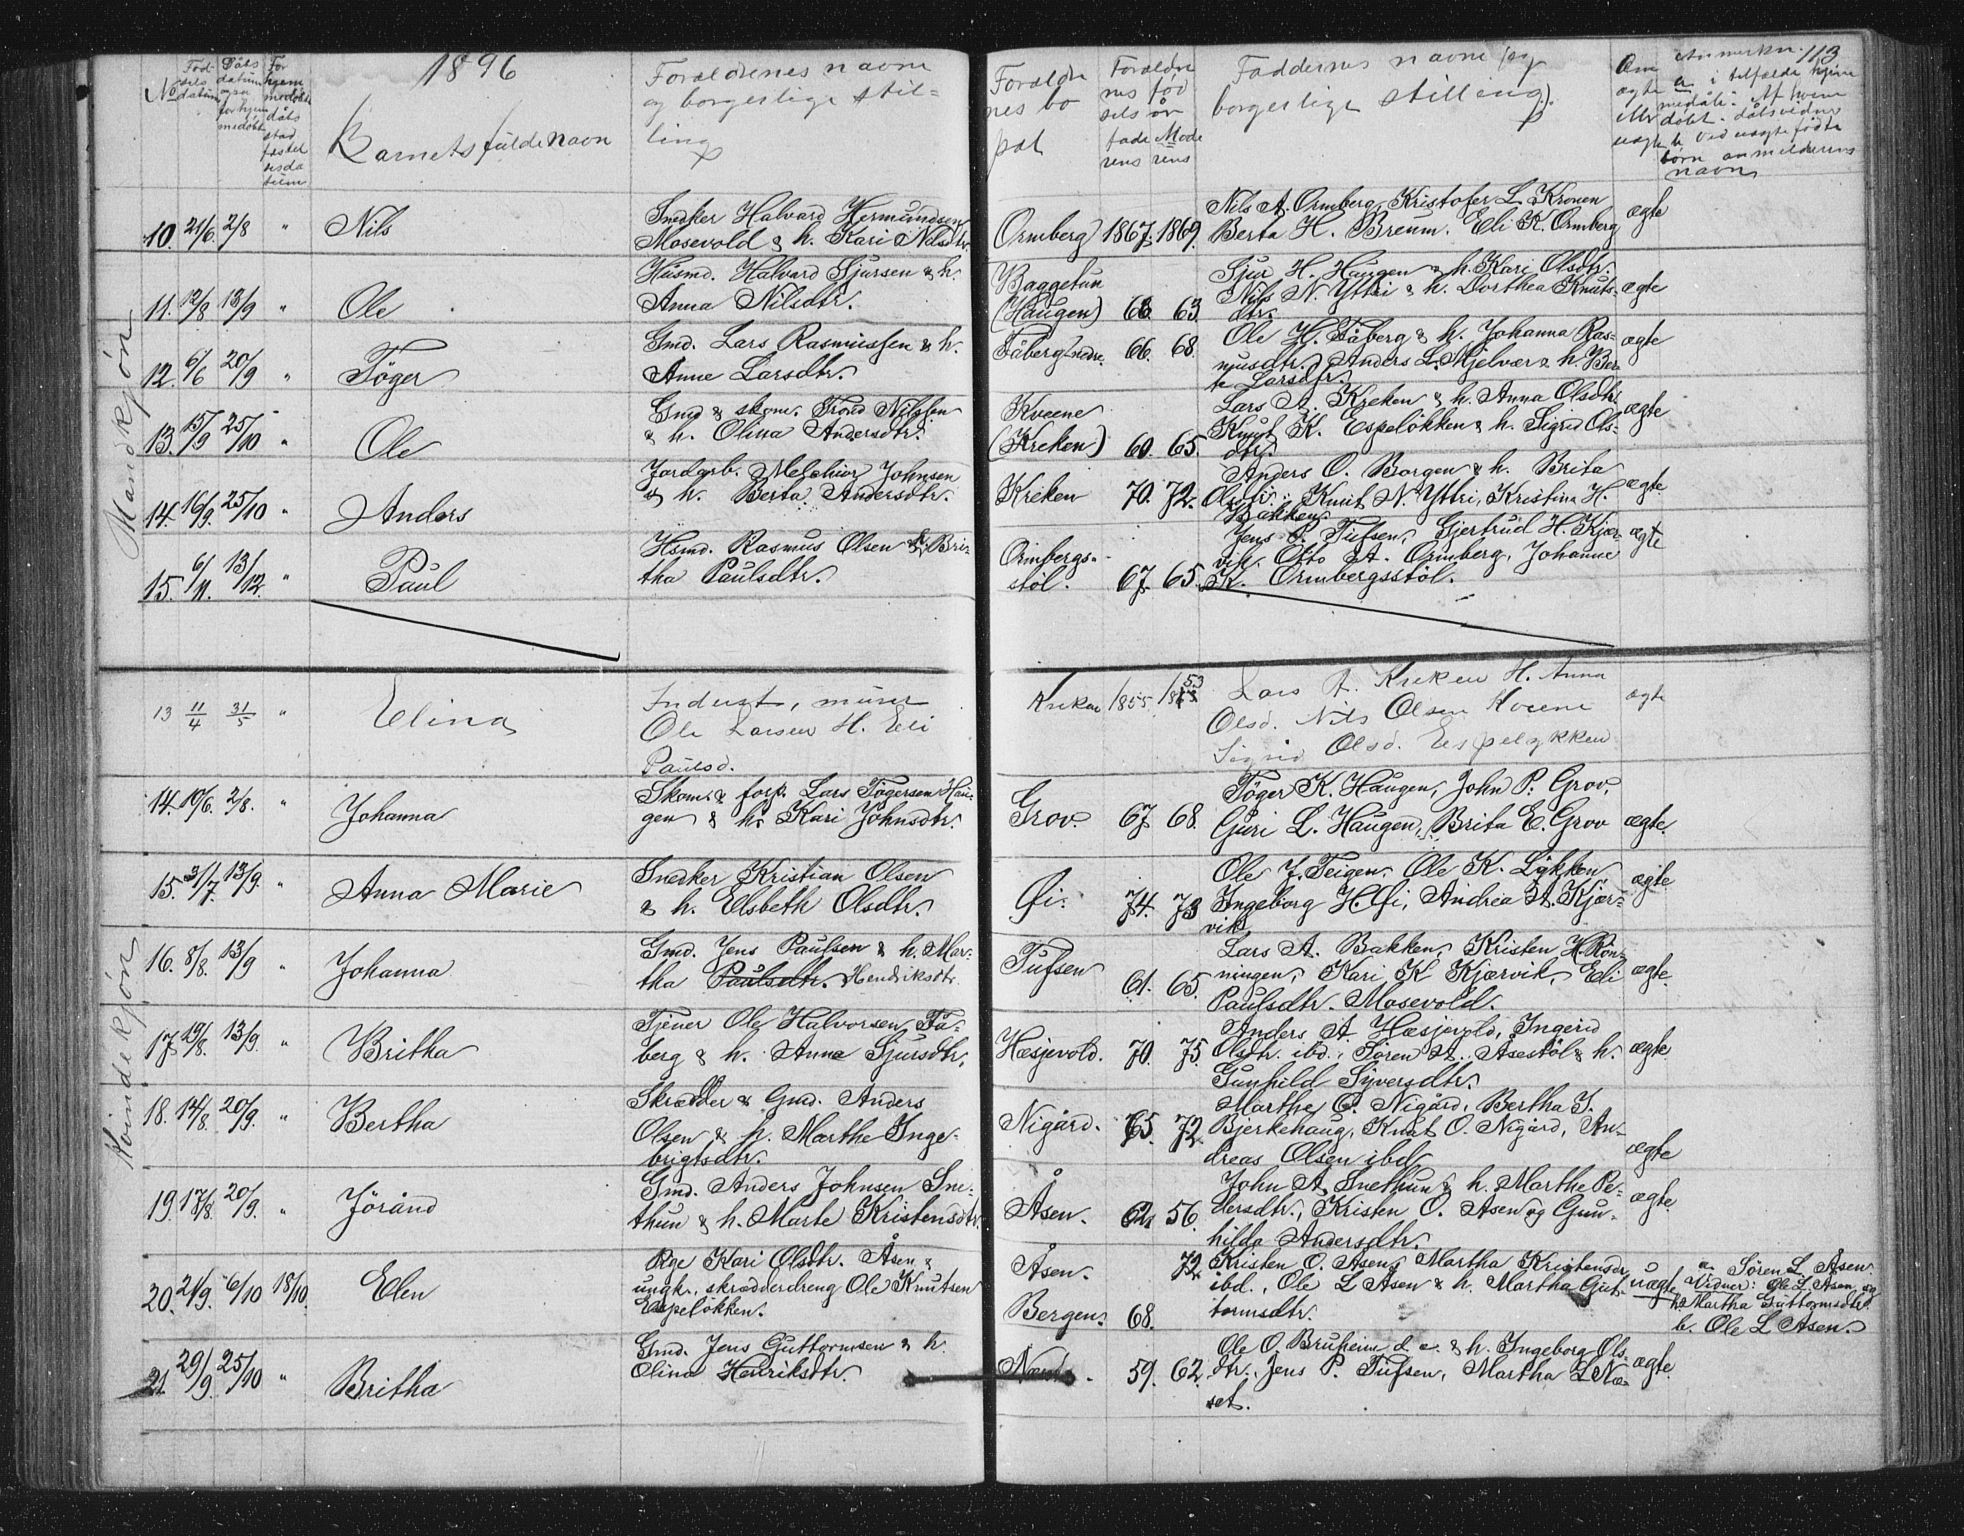 1896
113
No
Fød-
sels
datum
Dåbs
datum
også
for hjem
medøbt
For
hjem
medøbte
dåbs
stad
fæstel
sesda
tum
Barnets fulde navn
Forældrenes navne
og borgerlige stil-
ling
Foræld
nes bo
pæl
Forældre
nes fød
sels år
fade Mode
rens rens
Faddernes navne (og
borgerlige stilling).
Om
ægte
eller
uægte
Anmerkn.
a i tilfælde hjem
medåb: Af hvem
døbt. dåbsvidner
b. ved uægte fødte
børn anmelderens
navn
Mandkjøn
10. 21/6. 2/8 " Nils
Snedker Halvard Hermundsen
Mosevold & h. Kari Nilsdtr.
Ormberg 1867. 1869.
Nils A. Ormberg, Kristofer L. Kronen
Berta H. Breum. Eli K. Ormberg
ægte
11. 12/8 13/9 " Ole
Husmd. Halvard Sjursen & h.
Anna Nilsdtr.
Baggetun
(Haugen) 68. 63.
Sjur H. Haugen & h. Kari Olsdtr.
Nils N. Yttri & h. Dorthea Knuts-
dtr.
ægte
12. 6/6 20/9 " Tøger
Gmd. Lars Rasmussen & h.
Anne Larsdtr.
Fåberg nedre. 66. 68.
Ole H. Fåberg & h. Johanna Ras-
musdtr. Anders L. Mjelvær & h. Ber-
te Larsdtr.
ægte
13. 15/9 25/10 " Ole
Gmd & skom. Trond Nilssen
& h. Olina Andersdtr.
Kveene
(Kreken) 60. 65.
Lars A. Kreken & h. Anna Olsdtr.
Knut K. Espeløkken & h. Sigrid Ols-
dtr.
ægte
14. 16/9. 25/10 " Anders
Jordarb. Melchior Johnsen
& h. Berta Andersdtr.
Kreken 70. 72.
Anders O. Borgen & h. Brita
Olsdtr. Knut N. Yttri, Kristina H.
Bakken.
ægte
15. 6/11. 13/12. " Paul
Hsmd. Rasmus Olsen & h. Bri-
tha Paulsdtr.
Ormbergs-
støl. 67. 65.
Jens P. Tufsen, Gjertrud H. Kjær-
vik, Otto A. Ormberg, Johanne
K. Ormbergsstøl.
ægte
Kvindekjøn
13 11/4 31/5 " Elina
Inderst, murer
Ole Larsen H. Eli
Paulsd.
Kreken 1855 1853
Lars A. Kreken H. Anna
Olsd. Nils Olsen Kveene
Sigrid Olsd. Espeløkken
ægte
14. 10/6. 2/8. " Johanna
Skom. & forp. Lars Tøgersen Hau-
gen & h. Kari Johnsdtr.
Grov. 67. 68.
Tøger K. Haugen, John P. Grov,
Guri L. Haugen, Brita E. Grov
ægte.
15. 31/7. 13/9. " Anna Marie
Snedker Kristian Olsen
& h. Elsbeth Olsdtr.
Øi. 74. 73
Ole J. Teigen, Ole K. Løkken
Ingeborg H. Øi, Andrea A. Kjær-
vik.
ægte
16. 8/8. 13/9 " Johanna
Gmd. Jens Paulsen & h. Mar-
tha Paulsdtr. Hendriksdtr.
Tufsen 61. 65.
Lars A. Bakken, Kristen H. Røn-
ningen, Kari K. Kjærvik, Eli
Paulsdtr. Mosevold.
ægte.
17. 19/8. 13/9. " Britha
Tjener Ole Halvorsen Få-
berg & h. Anna Sjursdtr.
Hæsjevold. 70. 75.
Anders A. Hæsjevold, Ingerid
Olsdtr. ibd., Søren A. Åsestøl & h.
Gunhild Syversdtr.
ægte
18. 14/8. 20/9. " Bertha
Skrædder & Gmd. Anders
Olsen & h. Marthe Inge-
brigtsdtr.
Nigård. 65. 72.
Marthe O. Nigård, Bertha J.
Bjerkehaug, Knut O. Nigård, An-
dreas Olsen ibd.
ægte
19. 17/8. 20/9. " Jørånd
Gmd. Anders Johnsen Sne-
thun & h. Marte Kristensdtr.
Åsen. 62. 56.
John A. Snethun & h. Marthe Pe-
dersdtr., Kristen O. Åsen og Gun-
hilda Andersdtr.
ægte.
20. 21/9. 6/10 18/10. Elen
Pge Kari Olsdtr. Åsen &
ungkr. skrædderdreng Ole Knutsen
Espeløkken.
Åsen. 72.
Bergen. 68.
Kristen O. Åsen, Martha Kristensdtr.
ibd., Ole L. Åsen & h. Martha Gut-
tormsdtr.
uægte
a. Søren L. Åsen.
Vidner: Ole L. Åsen og
h. Martha Guttormsdtr.
b. Ole L. Åsen.
21. 29/9. 25/10 " Britha
Gmd. Jens Guttormsen & h.
Olina Henriksdtr.
Næset. 59. 62.
Ole O. Bruheim & h. Ingeborg Ols-
dtr. Jens P. Tufsen, Martha L. Næ-
set.
ægte.